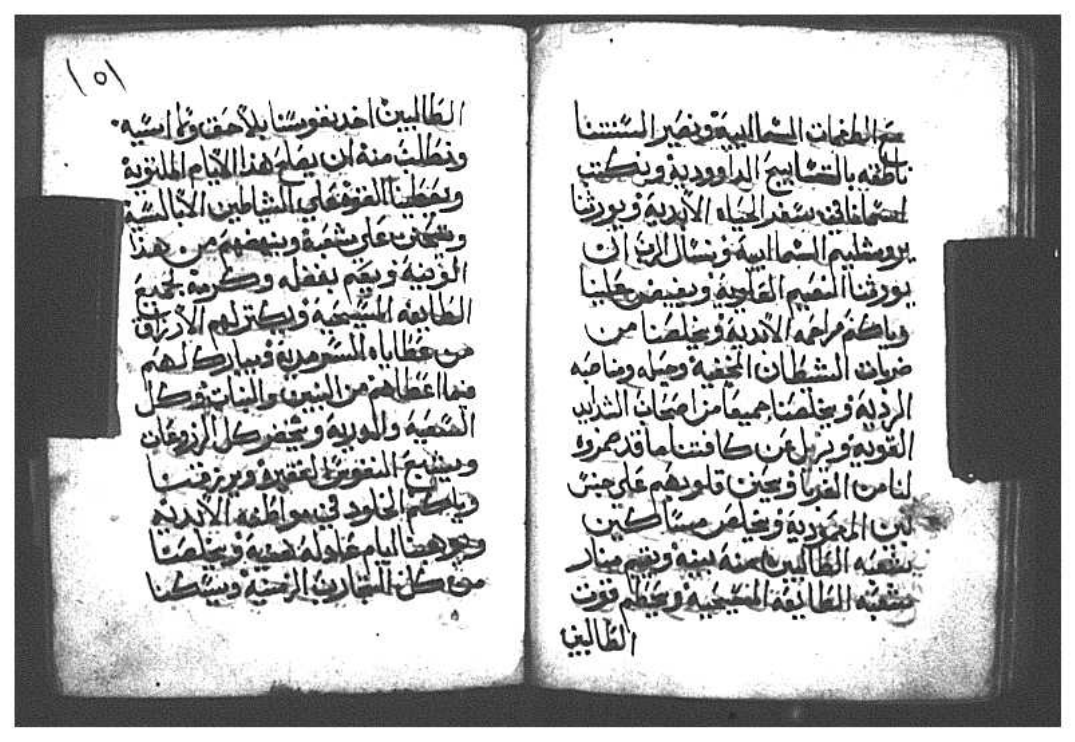 مع الطغمات السماايية ونصير السنتنا
ناطقه بالتسابيح الداوودية ويكتب
اسمانا في سفر الحياه الابدية ويورثنا
يروشليم السماايية ونسال الرب ان
يورثنا النعيم العلوية ويفيض علينا
وياكم مراحمه الابدية ويخلصنا من
ضربات الشطان المخفية وحيله ومناصبه
الرديه ويخلصنا جميعا من اصحاب الشدايد
القوية ويزيل عن كافتنا ما قد
لنا من الغربا ويحنن قلوبهم على جنس
لبن المعمودية ويخلص مساكين
شعبه الطالبين بينه ويقيم منار
شعبه الطايفه المسيحيه ويعظم قوت
الطالبين
١٥١
الطالبين اخد نفوسنا بلا حق
ونطلب منه ان يصلح هذا الايام الملتوية
ويعطينا القوه على الشاطين الابالسية
ويتحنن على شعبه وينهضهم من هذا
ويعم بفضله وكرمه لجميع
الطايفه المسيحية ويكتر لهم الارزاق
من عطاياه السرمدية ويبارك لهم
فيما اعطاهم من البنين والبنات وكل
الشعبية والدرية ويخضر كل الزروعات
ويشبع النفوس الفقيرة ويرزقنا
وياكم الخلود في مواطنه الابدية
هذا ايام ويخلصنا
من كل التجارب الزمنية ويسكنا